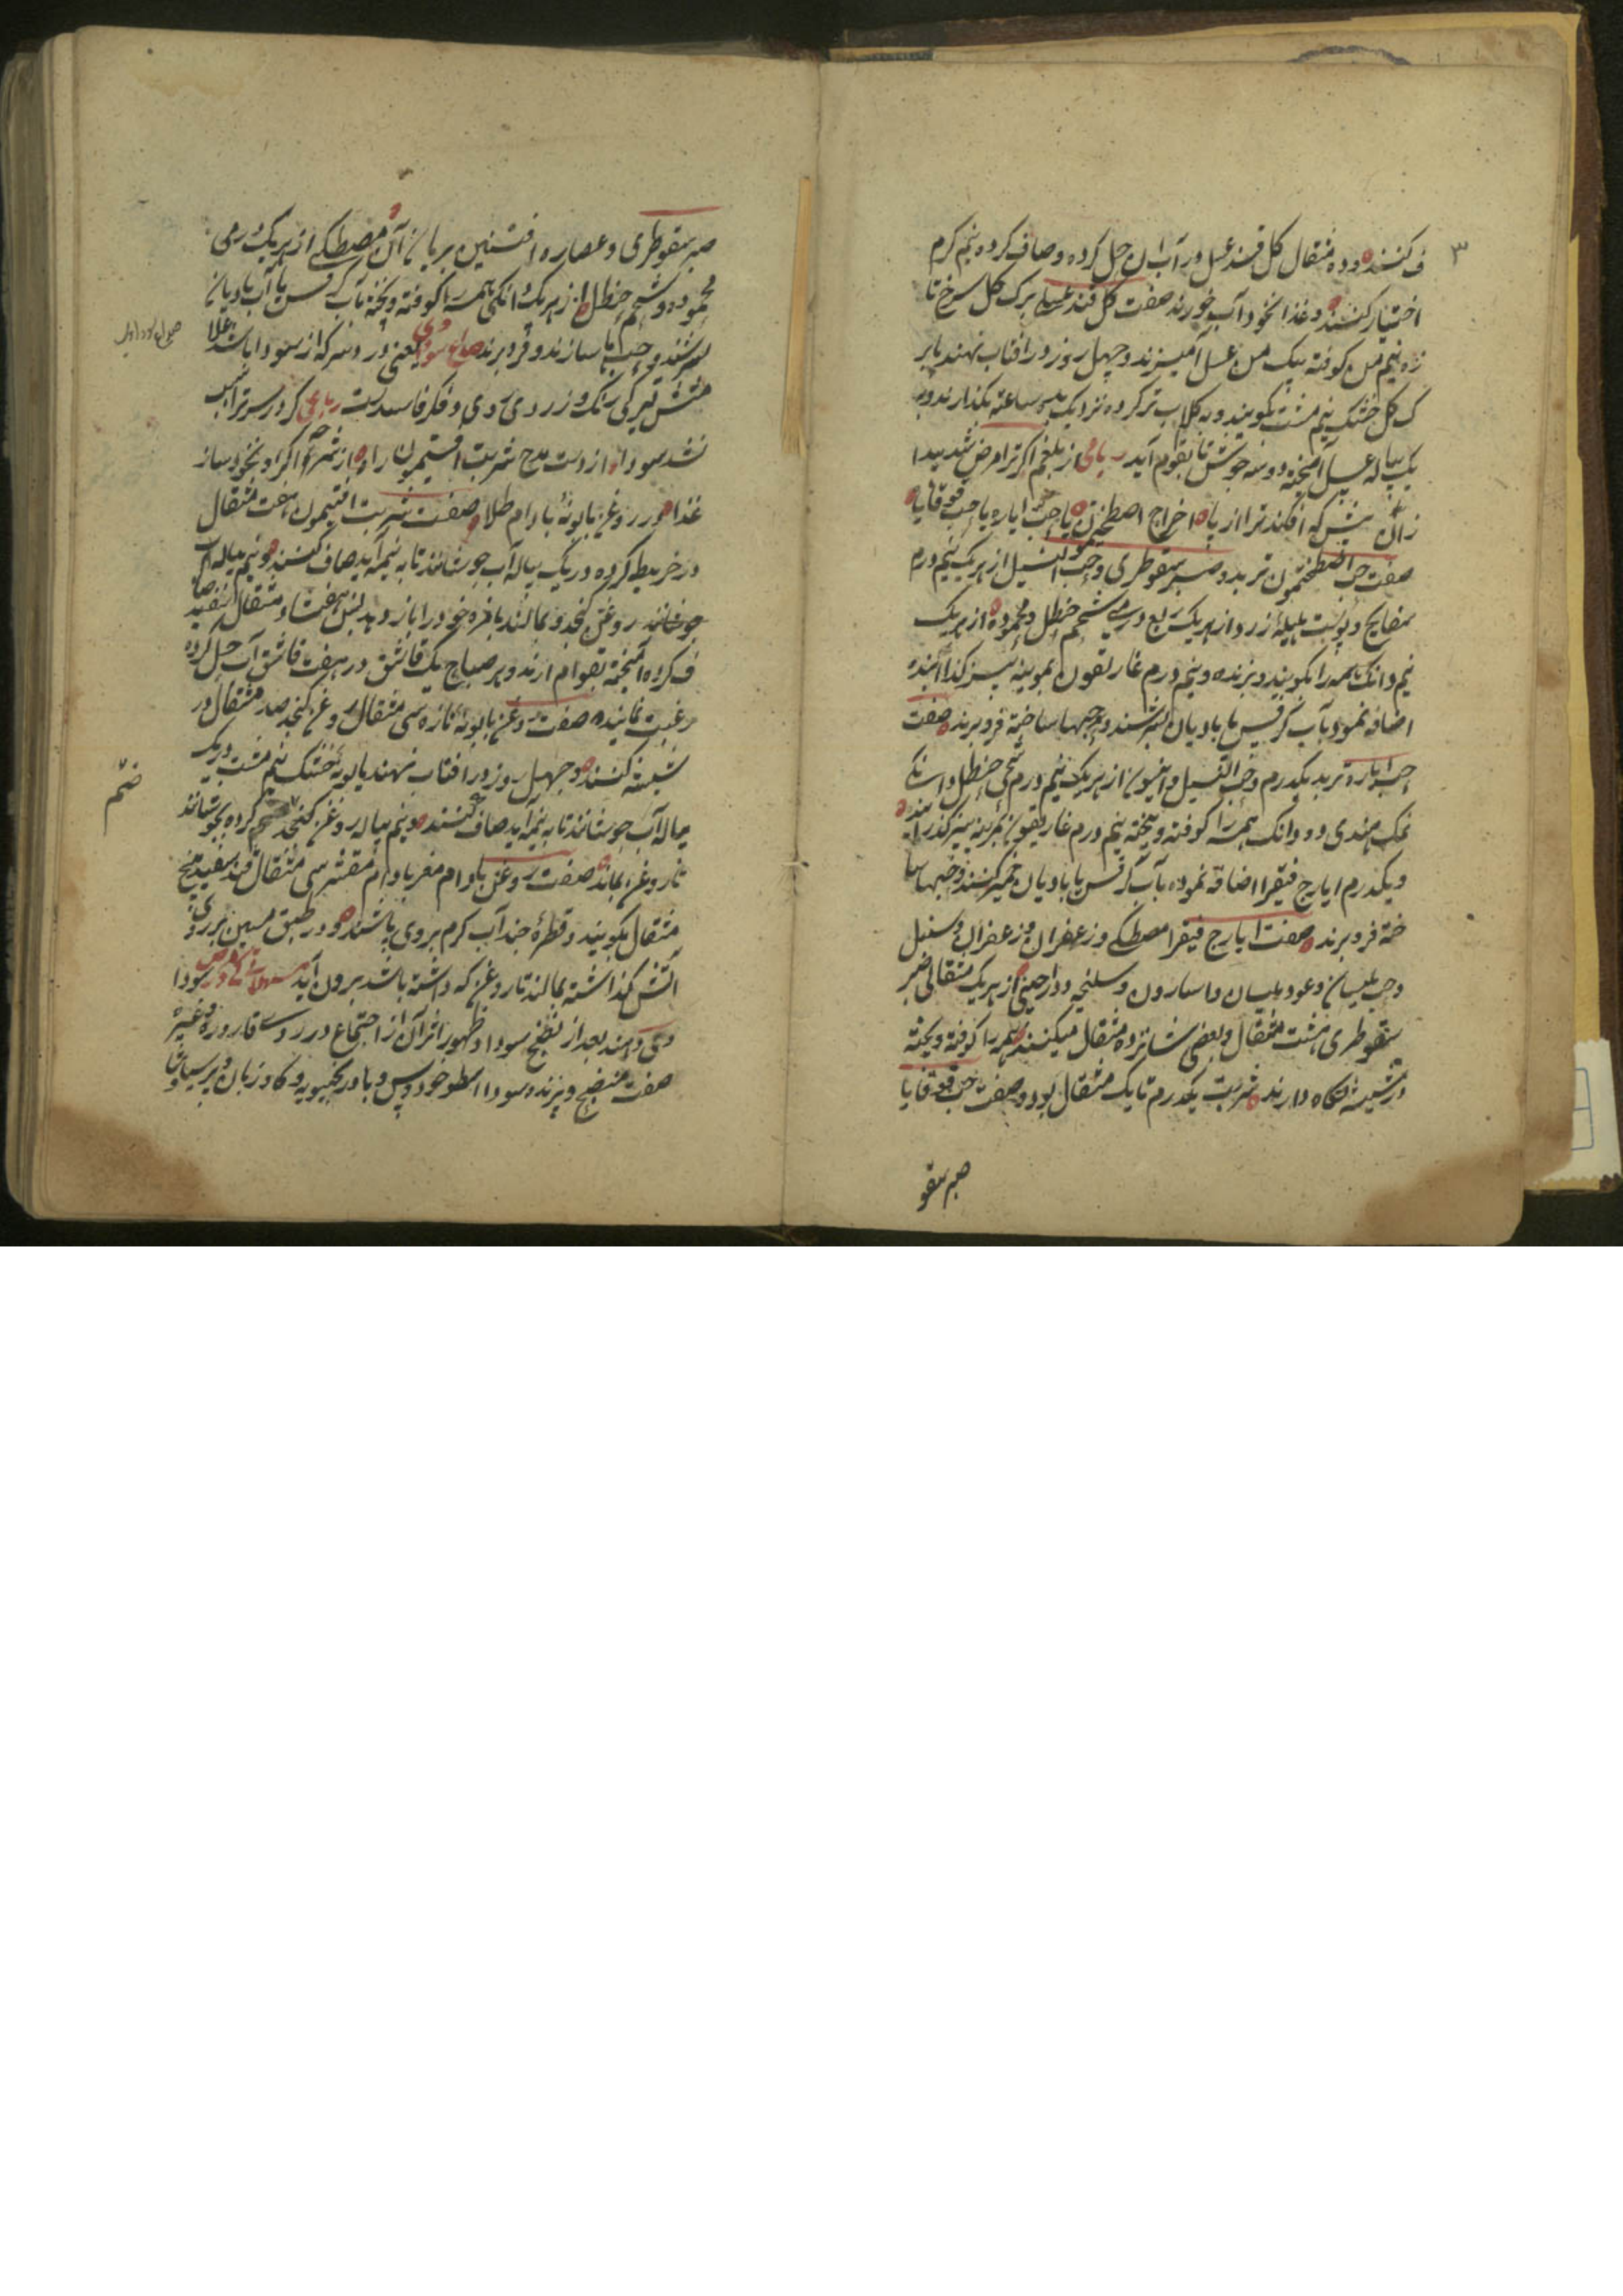 ۳
ف کنند و ده مثقال کل قند عسل در آب ان حل کرده و صاف کرده نیم کرم
اختیار کنند و غذا نخود آب خورند صفت کل قند عسلی برک کل سرخ تا
زه نیم من کوفته بیک من عسل آمیزند و چهل روز در افتاب نهند یا بر
ک کل خشک نیم مشت بکویند و بکلاب تر کرده نزدیک بسه ساعته بکذارند و به
یک پیاله عسل آمیخته دو سه جوش تا بقوام آید رباعی از بلغم اکر ترا مرض شد پیدا
زان پیش که افکند ترا از پا اخراج اصطمخیقون یا حب ایاره یا حب قوقایا
صفت حب اصطمخیقون تربد و صبر سقوطری و حب النیل از هریک نیم درم
بسفایج و پوست هلیله زرد از هریک ربع درمی شحم حنظل و محموده از هریک
نیم دانک همه را بکویند و بیزند و نیم درم غاریقون بموینه بیز کذرانیده
اضافه نمود بآب کرفس یا بادیان بسرشند و حبها ساخته فرو برند صفت
حب ایاره تربد یکدرم و حب النیل و انیسون از هریک نیم درم شحم حنظل دانکی
نمک هندی دو دانک همه را کوفته و بیخته نیم درم غاریقون بموینه بیز کذرانیده
و یکدرم ایارج فیقرا اضافه نموده بآب کرفس یا بادیان خمیر کنند و حبها سا
خته فرو برند صفت ایارج فیقرا مصطکی و زعفران و سنبل
و حب بلسان و عود بلسان و اسارون و سلیخه و دارچینی از هریک مثقالی صبر
سقوطری هشت مثقال و بعضی شانزده مثقال میکنند همه را کوفته و بیخته
در شیشه نکاه دارند شربت یکدرم تا یک مثقال بود صفت حب قوقایا
صبر سقو
صبر سقوطری و عصاره افسنتین بریان آن مصطکی از هریک درمی
محموده و شحم حنظل از هریک دانکی همه را کوفته و بیخته بآب کرفس یا آب بادیان
بسرشند و حبها سازند و فرو برند صداع سوداوی یعنی درد سر که از سودا باشد علا
متش تیرکی رنک و زردی روی و فکر فاسدست رباعی کر درد سرت را سبب
شد سودا از دست مده شربت افتیمون را
غذا در روغن بابونه بادام طلا صفت شربت افتیمون هفت مثقال
در خریطه کرده در یک پیاله آب جوشانند تا به نیمه آید صاف کنند و نیم پیاله
ف کرده آمیخته بقوام ارند و هر صباح یک قاشق در هفت قاشق آب حل کرده
رغبت نمایند صفت روغن بابونه تازه سی مثقال روغن کنجد صد مثقال در
شیشه کنند و چهل روز در افتاب نهند یا بونه خشک نیم مشت در یک
پیاله آب جوشانند تا به نیمه آید صاف کنند و نیم پیاله روغن کنجد ضم کرده بجوشانند
تا روغن بماند صفت روغن بادام مغز بادام مقشر سی مثقال قند سفید پنج
مثقال بکویند و قطره چند آب کرم بروی پاشند و در طبق مسین بر روی
آتش کذاشته بمالند تا روغن که داشته باشد برون آید
می دهند بعد از نضج سودا و ظهور اثر آن از اجتماع در رو قاروره و غیره
صفت منضج و پزنده سودا اسطوخودوس و بادرنجبویه و کاوزبان و پرسیاوشا
ضم